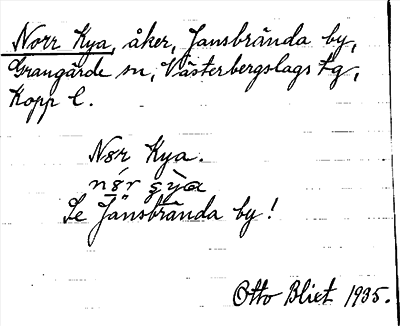 Norr Kya, åker, Jansbrända by,
Grangärde sn, Västerbergslags tg,
Kopp l.
Nør Kya.
nǿr gỳa
Se Jänsbrända by!
Otto Blixt 1935.